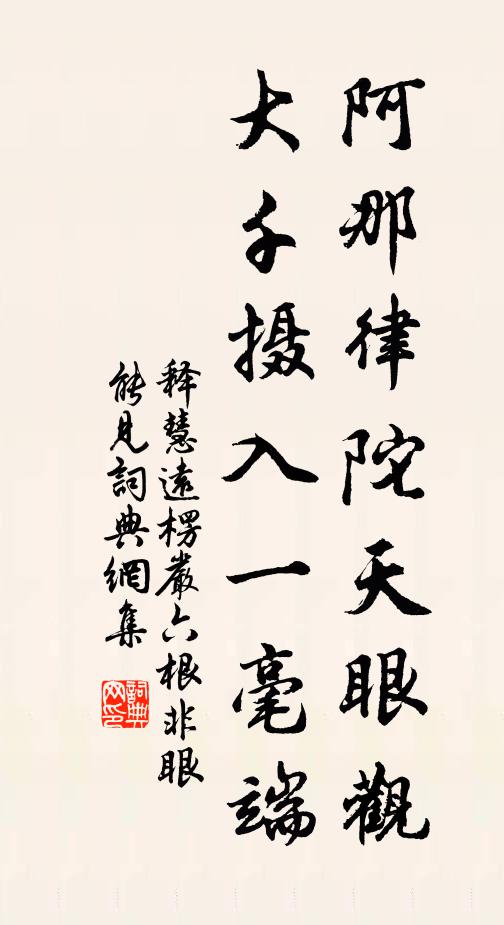 阿那律陀天眼觀
大千摄入一毫端
释慧遠楞嚴六根非眼
能見詞典網集
詞典
网印